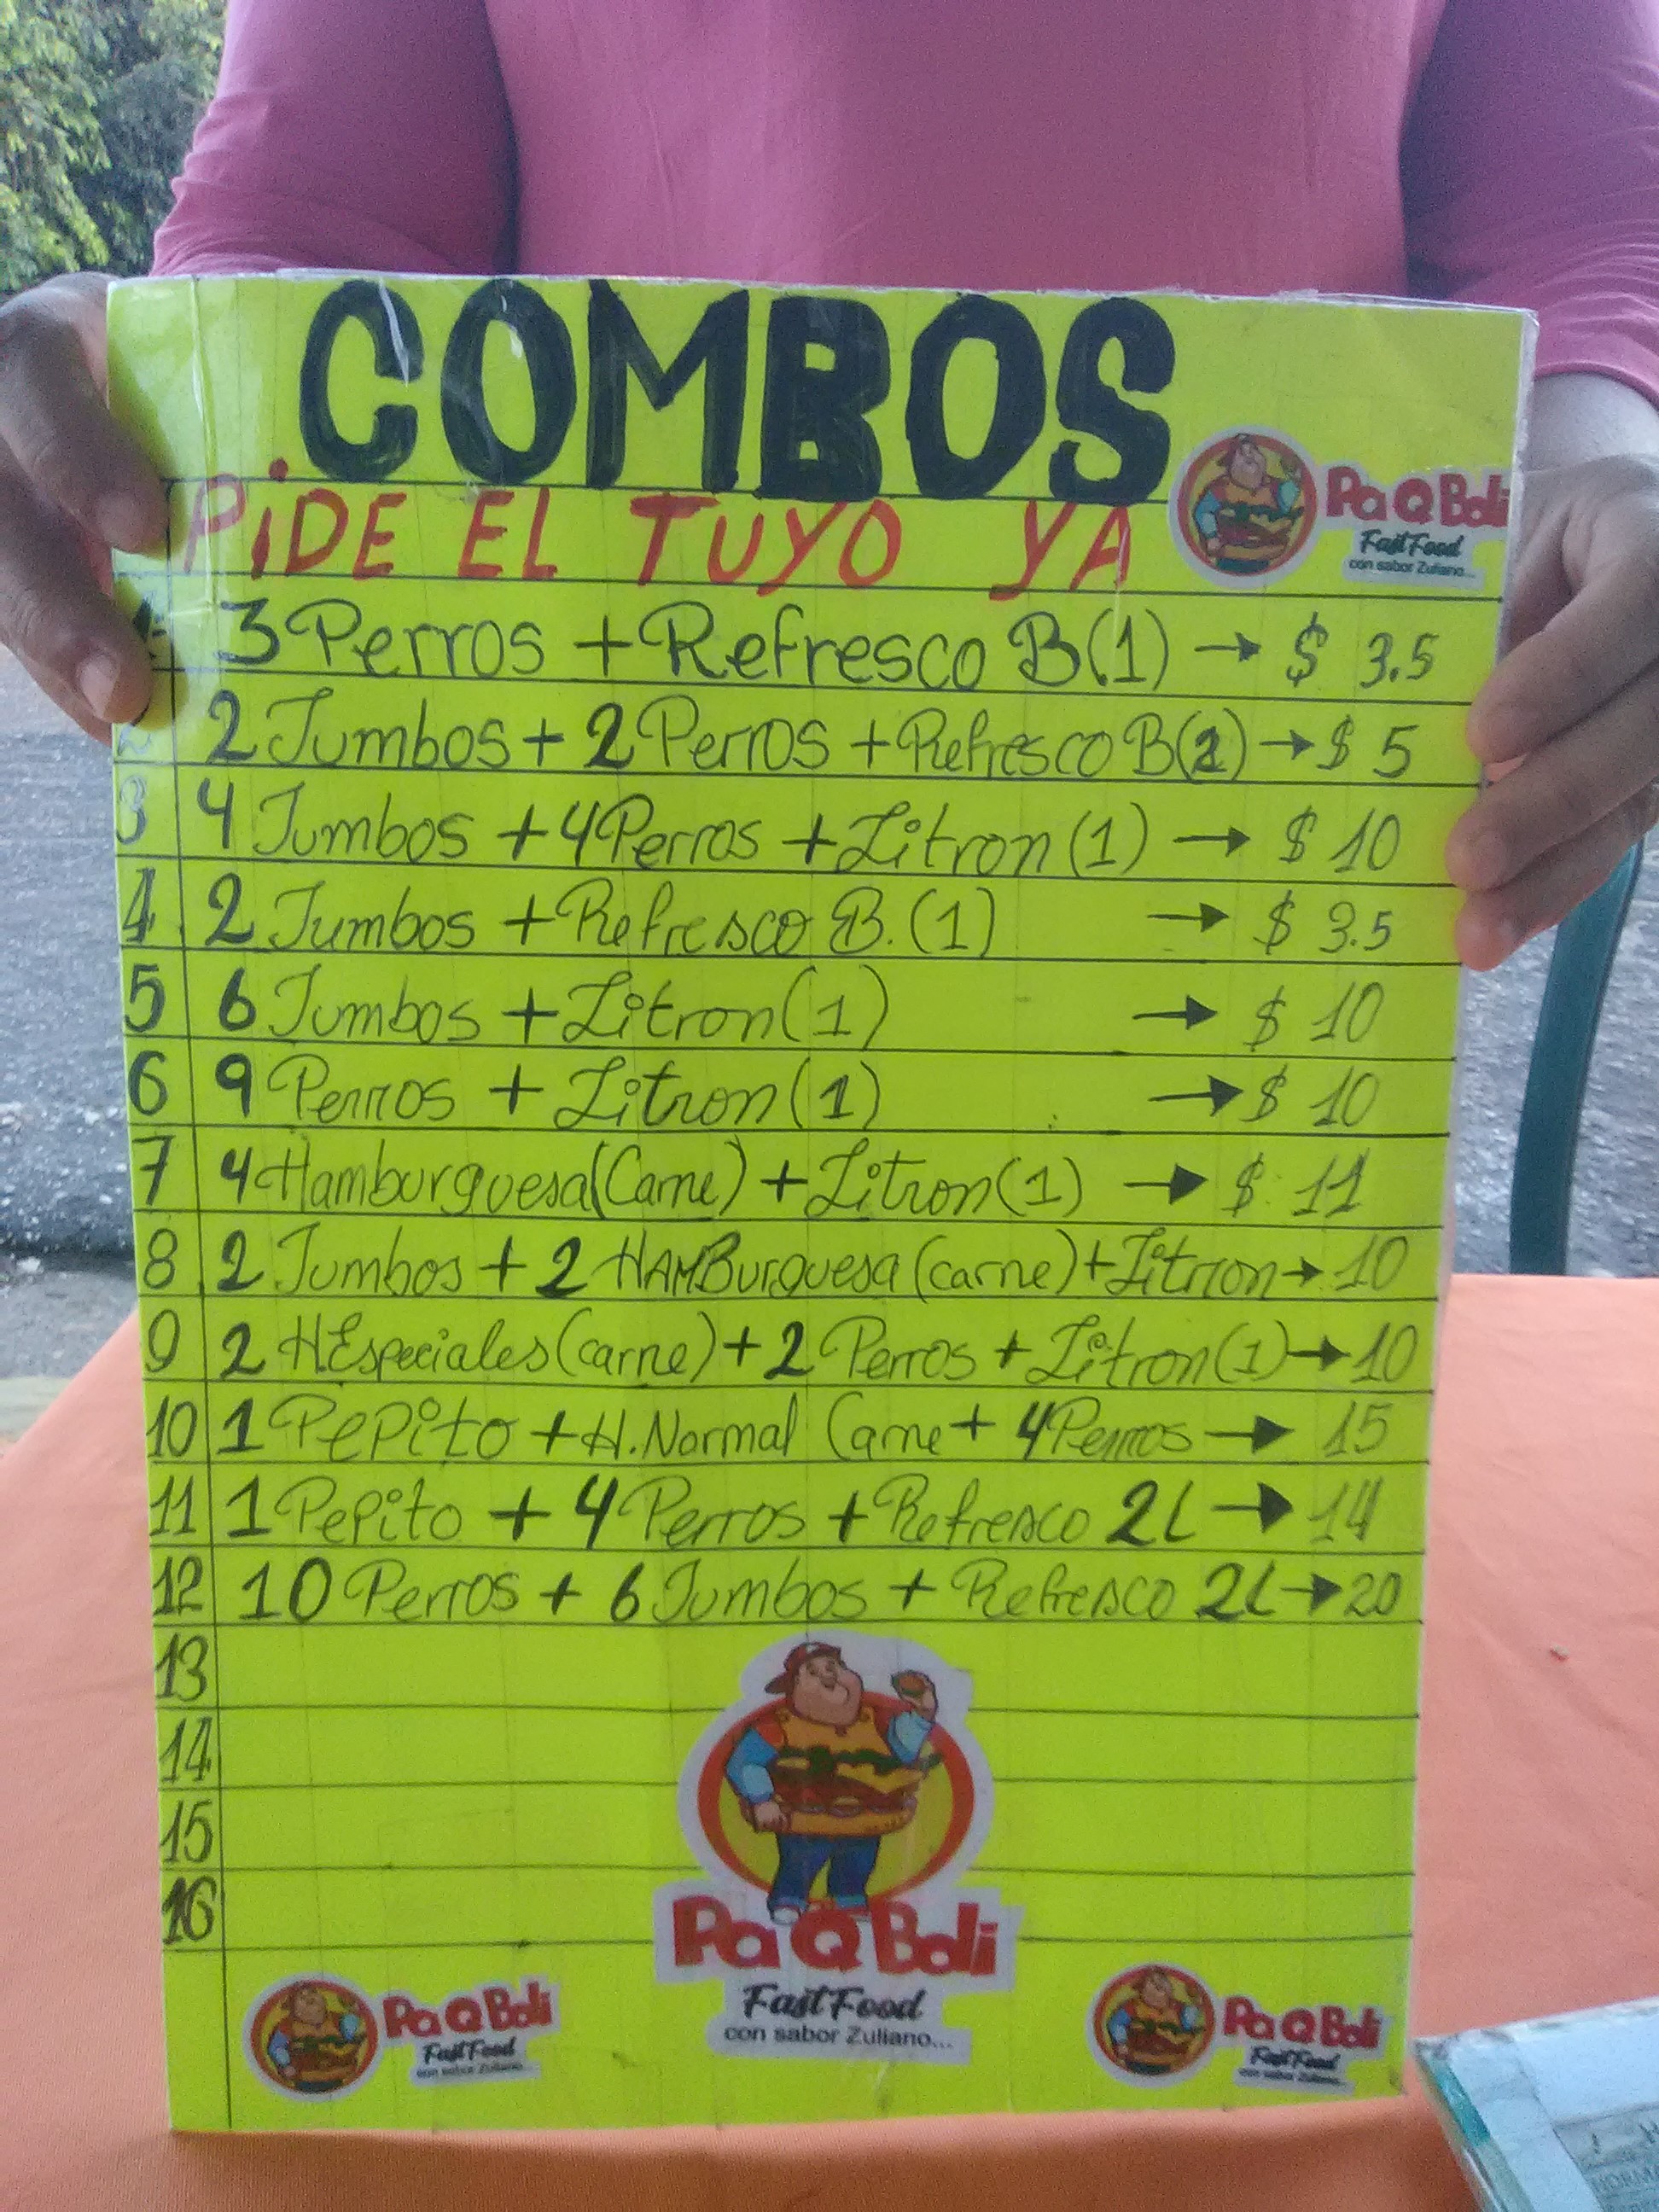 COMBOS
PiDE EL TUYO YA
Pa Q Boli
Fast Food
con sabor Zuliano...
1 3 Perros + Refresco B(1) → $ 3.5
2 2 Jumbos + 2 Perros + Refresco B(2) → $ 5
3 4 Jumbos + 4 Perros + Litron (1) → $ 10
4 2 Jumbos + Refresco B. (1) → $ 3.5
5 6 Jumbos + Litron (1) → $ 10
6 9 Perros + Litron (1) → $ 10
7 4 Hamburguesa (Carne) + Litron (1) → $ 11
8 2 Jumbos + 2 HAMBurguesa (carne) + Litron → 10
9 2 H Especiales (carne) + 2 Perros + Litron (1) → 10
10 1 PePito + H. Normal Carne + 4 Perros → 15
11 1 PePito + 4 Perros + Refresco 2L → 14
12 10 Perros + 6 Jumbos + Refresco 2L → 20
13
14
15
16
Pa Q Boli
Fast Food
con sabor Zuliano...
Pa Q Boli
Fast Food
con sabor Zuliano...
Pa Q Boli
Fast Food
con sabor Zuliano...